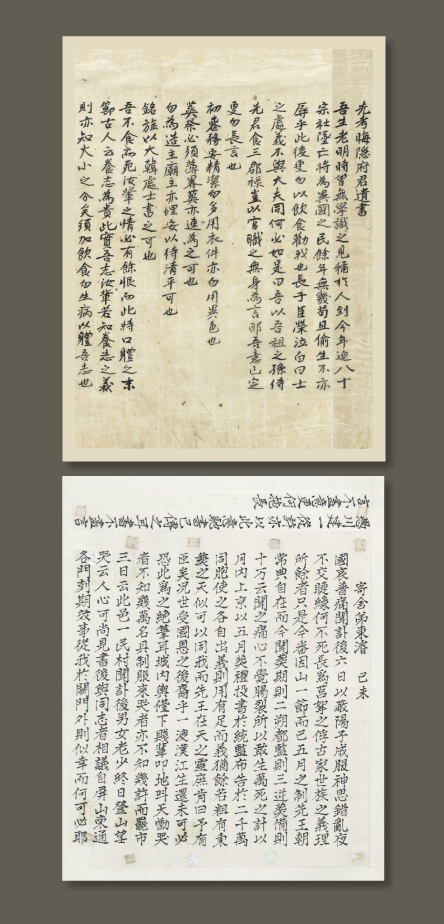 先考晦隱府君遺書
吾生老明時曾無學識之見稱於人到今年迫八十
宗社墜亡將為異國之民餘年無幾苟且偷生不亦
辱乎此後更勿以飲食勸我也長子臣榮泣白曰士
之處義不與大夫同何必如是曰吾以吾祖之孫侍
先君食三郡祿豈以官職之無身為言耶吾意已定
更勿長言也
初喪務要精潔勿多用衣件亦勿用異色也
葬祭必須薄畧葬亦速為之可也
勿為造主廟主亦埋安以待清平可也
銘旌以大韓處士書之可也
吾不食而死汝輩之情必有餘恨而此特口軆之末
節古人云養志為貴此實吾志汝輩若知養志之義
則亦知大小之分矣須加飲食勿生病以軆吾志也
寄舍弟東濬 己未
國哀普痛聞訃後六日以蔽陽子成服神思錯亂夜
不交睫緣何不死長為莒嫠之倚古家世族之義理
所餘者只是今番因山一節而已五月之制先王朝
常典自在而今聞葬期則二湖都監則三逆葬備則
十万云聞之痛心不覺腸裂所以敢生萬死之計以
月內上京以五月葬禮投書於統監布告於二千萬
同胞使之各自出義則用有足而義猶餘若粗有秉
彛之天似可以同我而先王在天之靈庶肯曰予有
臣矣况世受國恩之後裔乎一渡漢江生還未可必
恐此為之絕筆耳城內輿儓下賤輩叩地叫天慟哭
者不知幾萬名具制服來哭者亦不知幾許而罷市
三日云此邑一民村聞訃後男女老少終日登山望
哭云人心可尚見書後與同志者相議自屏山東通
各門刻期效事從我於闕門外則似幸而何可必耶
川達一從 亦以此意 書已傳之耳書不盡言
言不盡意更何拖長